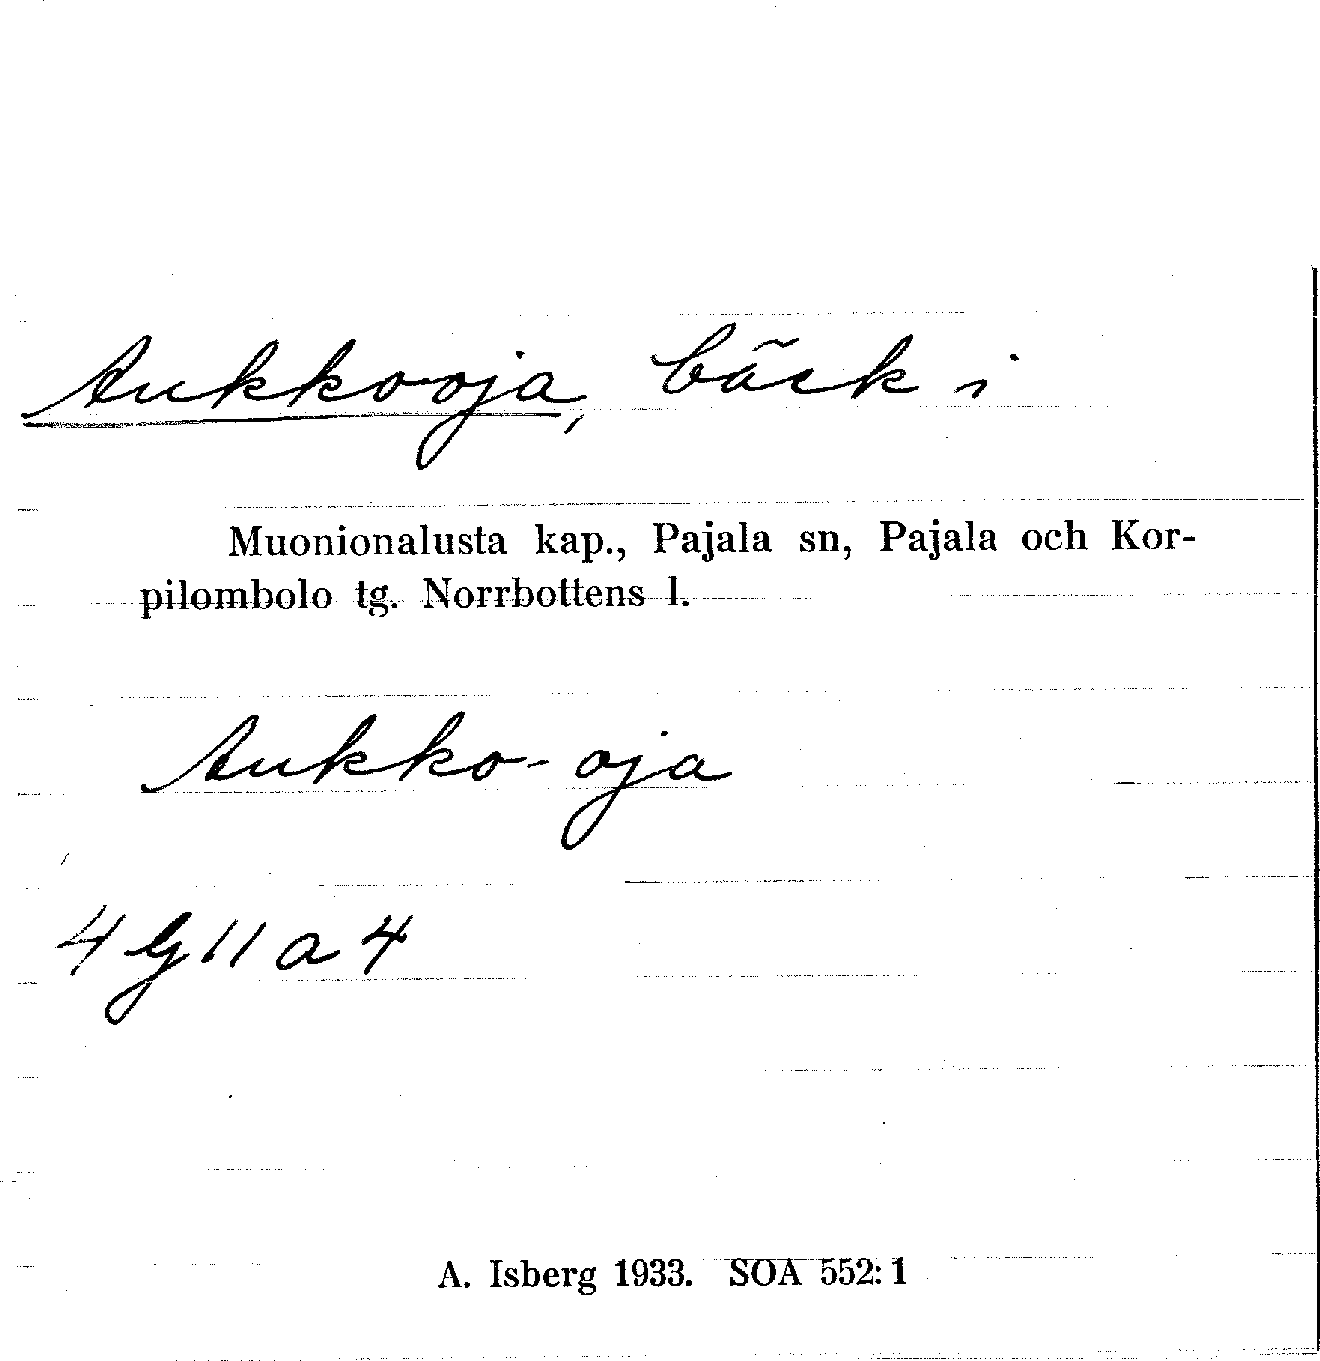 Aukko-oja, bäck i
Muonionalusta kap., Pajala sn, Pajala och Kor-
pilombolo tg. Norrbottens l.
Aukko-oja
4 G 11 a 4
A. Isberg 1933. SOA 552:1